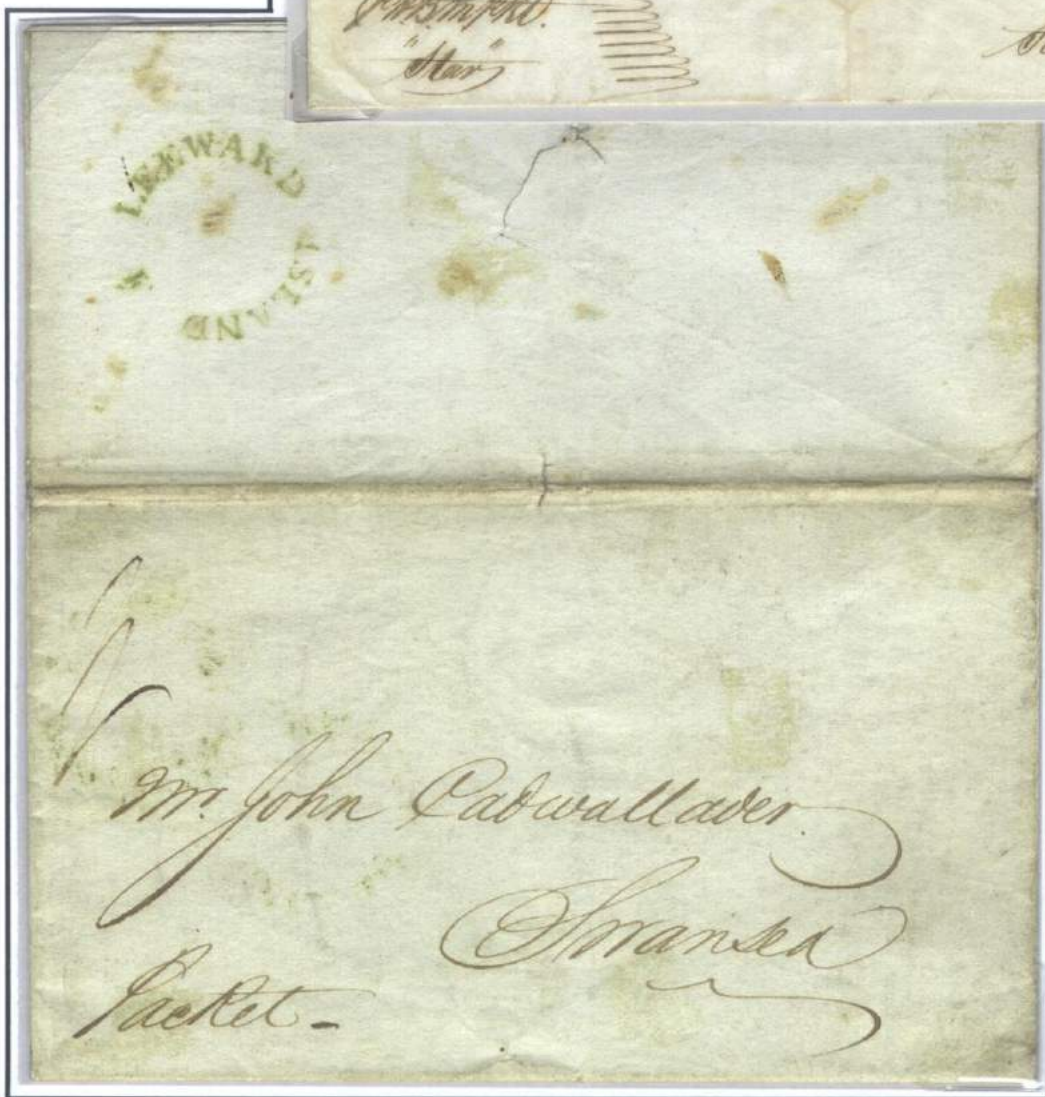 "Star"
LEEWARD ISLAND
Mr. John Cadwallader
Swansea
Packet -